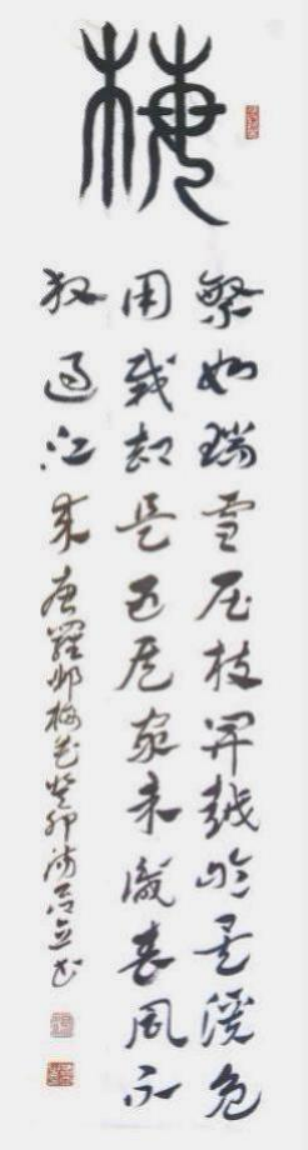 梅
繁如瑞雪压枝開越岭吴溪免
用栽却是五侯家未識春風不
放過江来 唐羅邺梅花癸卯